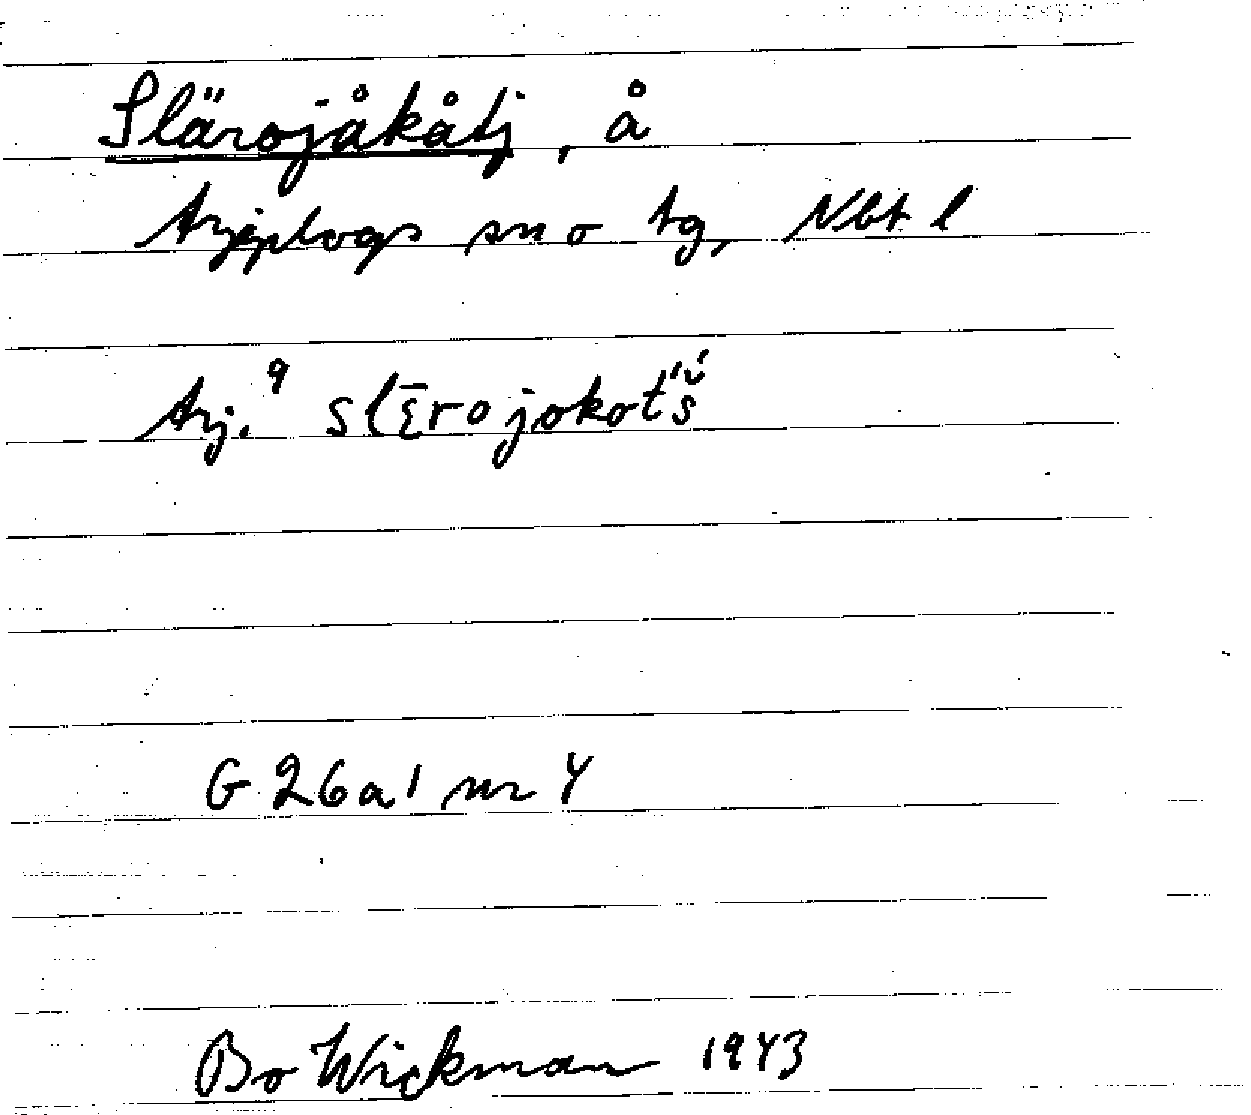 Slärojåkåtj, å
Arjeplogs sn o tg, Nbt l
Arj.⁹ slē̜rojokot́š́
G 26a1 nr 4
Bo Wickman 1943